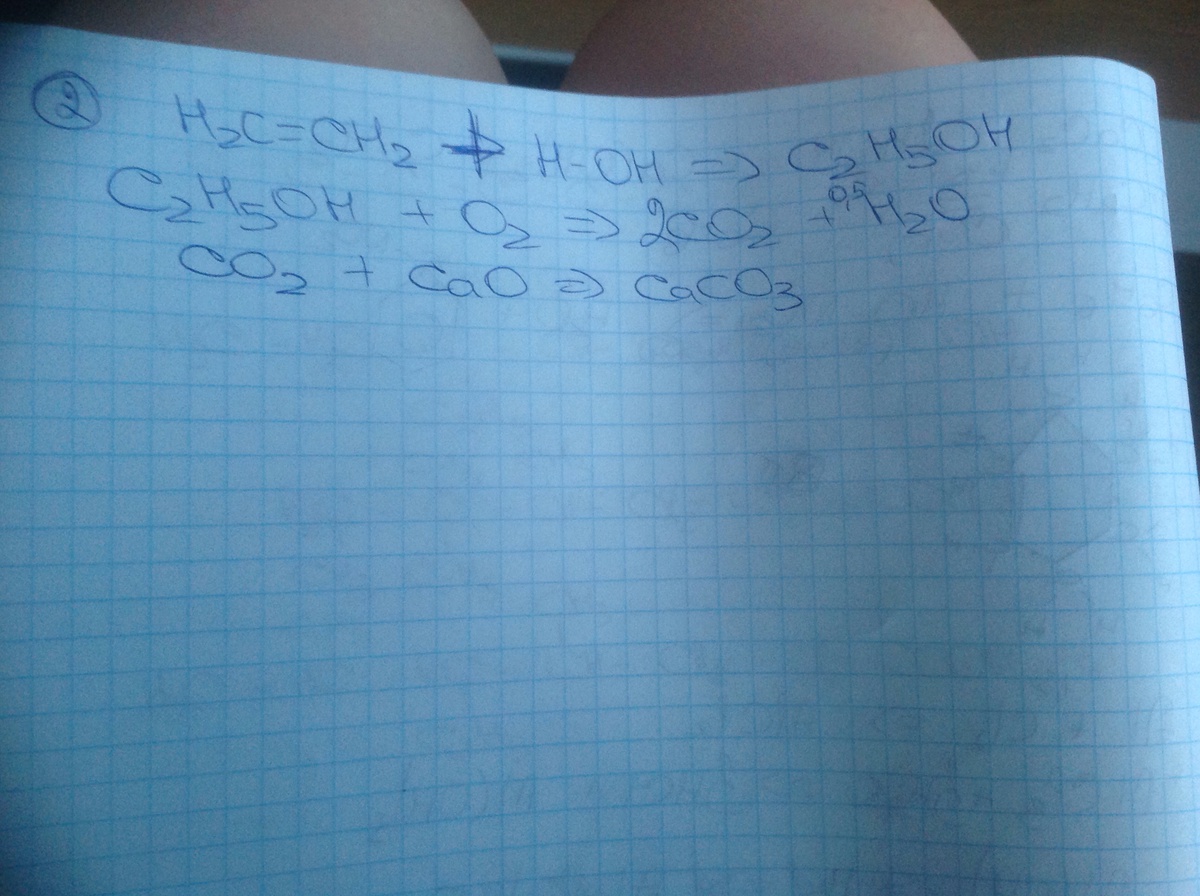 ② H₂C=CH₂ + H-OH => C₂H₅OH
C₂H₅OH + O₂ => 2CO₂ + 0,5H₂O
CO₂ + CaO => CaCO₃